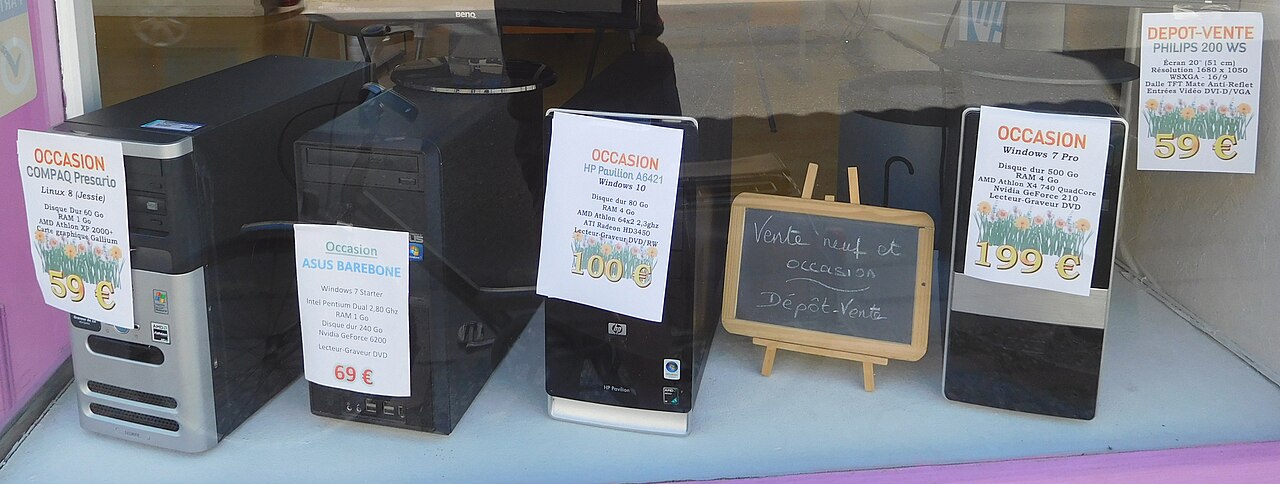 BENQ
OCCASION
COMPAQ Presario
Linux 8 (Jessie)
Disque Dur 60 Go
RAM 1 Go
AMD Athlon XP 2000+
Carte graphique Gallium
59 €
Occasion
ASUS BAREBONE
Windows 7 Starter
Intel Pentium Dual 2,80 Ghz
RAM 1 Go
Disque dur 240 Go
Nvidia GeForce 6200
Lecteur-Graveur DVD
69 €
OCCASION
HP Pavilion A6421
Windows 10
Disque dur 80 Go
RAM 4 Go
AMD Athlon 64x2 2,3ghz
ATI Radeon HD3450
Lecteur-Graveur DVD/RW
100 €
hp
HP Pavilion
Vente neuf et
occasion
Dépôt-Vente
OCCASION
Windows 7 Pro
Disque dur 500 Go
RAM 4 Go
AMD Athlon X4 740 QuadCore
Nvidia GeForce 210
Lecteur-Graveur DVD
199 €
DEPOT-VENTE
PHILIPS 200 WS
Écran 20" (51 cm)
Résolution 1680 x 1050
WSXGA - 16/9
Dalle TFT Mate Anti-Reflet
Entrées Vidéo DVI-D/VGA
59 €